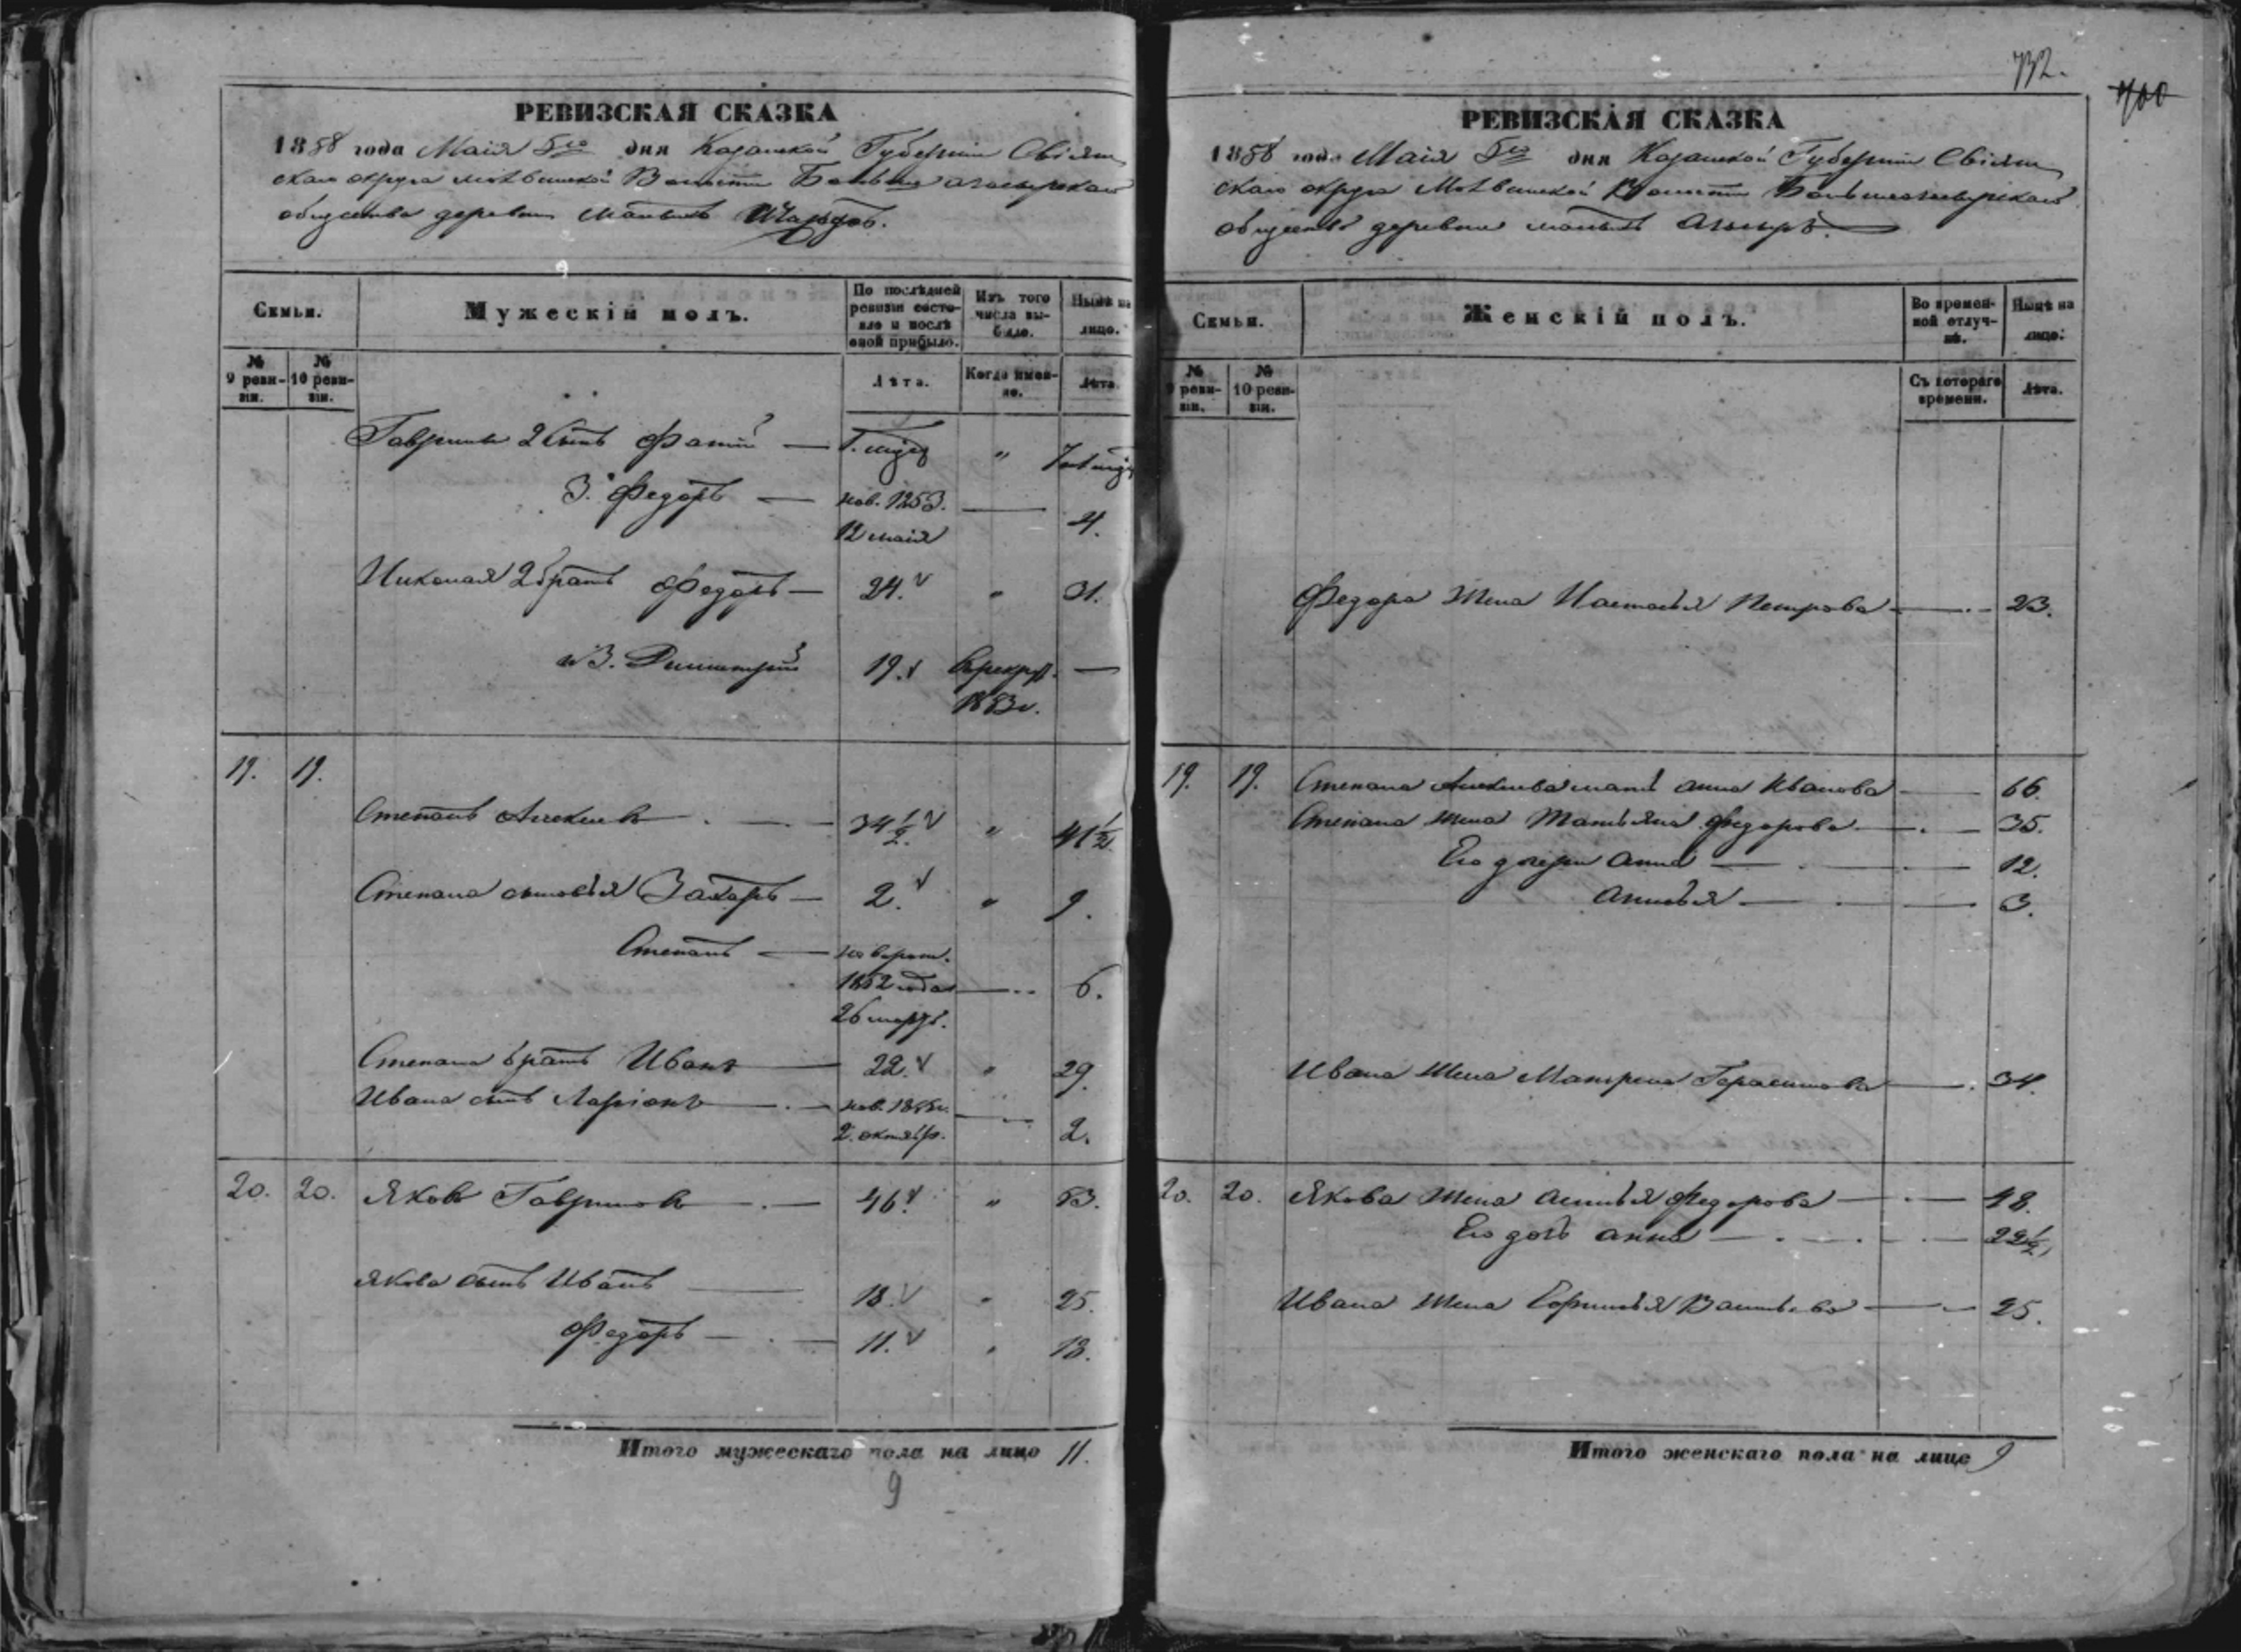 РЕВИЗСКАЯ СКАЗКА
1858 года Маія 5го дня Казанской Губерніи Свіяж
скаго округа Волости
общества деревни Малыхъ
Семьи.
Мужескій полъ.
По послѣдней ревизіи состояло и послѣ оной прибыло.
Изъ того числа выбыло.
Нынѣ на лицо.
№ 9 ревизіи.
№ 10 ревизіи.
Лѣта.
Когда именно.
Лѣта.
Гаврилы 2 сынъ —
3. Федоръ — нов. 1853. — 4.
12 маія
Николая 2 братъ Федотъ — 24. " 31.
и 3. Димитрій 19. Врекру. —
1853г.
19. 19.
Степанъ Алексѣевъ — 34 1/2 " 41 1/2
Степана сыновья Захаръ — 2. " 9.
Степанъ —
1852 года — 6.
26 марта.
Степана братъ Иванъ — 22. " 29.
Ивана сынъ Ларіонъ — нов. —
2. октябр. 2.
20. 20. Яковъ Гавриловъ — 46. " 53.
Якова сынъ Иванъ — 18. " 25.
Федоръ — 11. " 18.
Итого мужескаго пола на лицо 11.
9
732.
700
РЕВИЗСКАЯ СКАЗКА
1858 года Маія 5го дня Казанской Губерніи Свіяж
скаго округа Волости
общества деревни малыхъ
Семьи.
Женскій полъ.
Во временной отлучкѣ.
Нынѣ на лицо.
№ 9 ревизіи.
№ 10 ревизіи.
Съ котораго времени.
Лѣта.
Федора жена Настасья Петрова — 23.
19. 19. Степана Алексѣева мать Анна Иванова — 66.
Степана жена Татьяна Федорова — 35.
Его дочери Анна — 12.
— 3.
Ивана жена Матрена Герасимова — 34.
20. 20. Якова жена Федорова — 48.
Его дочь Анна — 22 1/2
Ивана жена Васильева — 25.
Итого женскаго пола на лице 9